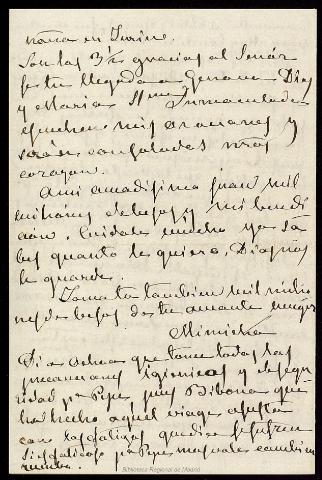 en Turin.
Son las 3½ gracias al Señor
tu llegada a Genova. Dios
y Maria Sma Inmaculada
escuchen mis oraciones y
corazon.
A mi amadisimo Juan mil
millones de besos y mi bendi
cion. Cuidate mucho ya sa
bes quanto te quiero. Dios nos
te guarde.
Toma tu tambien mil millo
nes de besos de tu amante
Dice que tome todas las
precauciones higienicas y de segu
ridad pa Pepe pues Bibona que
ha hecho aquel viage
con las fatigas que se sufren
pa Pepe mas vale cambien
rumbo.
Biblioteca Regional de Madrid